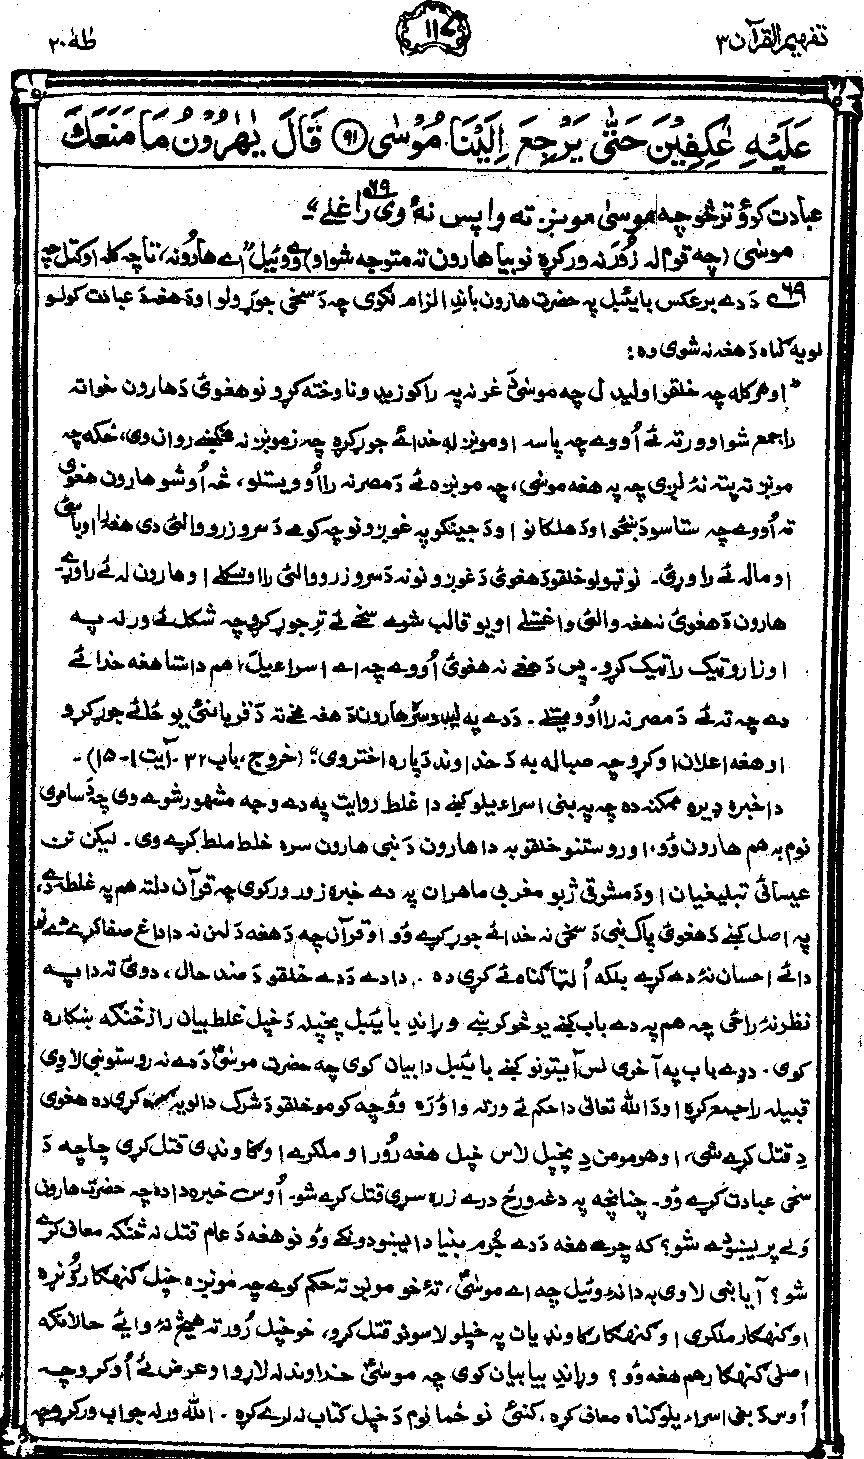 تفهيم القرآن ۳
۱۱۷
طٰهٰ ۲۰
عَلَيْهِ عٰكِفِيْنَ حَتّٰى يَرْجِعَ اِلَيْنَا مُوْسٰى ۹۱ قَالَ يٰهٰرُوْنُ مَا مَنَعَكَ
عبادت کوؤ ترڅو چه موسیٰ مونږ ته واپس نهٔ وی راغلے“۔ ۶۹
موسیٰ (چه قوم له زُوَرَنه ورکړه نو بیا هارون ته متوجه شو او) وُوئیل ”اے هارُونه، تا چه کله اوکتل چه
۶۹ دَ دے برعکس بائیبل په حضرت هارون باندِ الزام لګوی چه دَ سخی جوړولو او دَ هغه دَ عبادت کولو
لویه ګناه دَ هغه نه شوی وه:
”او هر کله چه خلقو اولیدل چه موسیٰؑ غرنه په راکوزیدو ناوخته کړو نو هغوئ دَ هارون خواته
راجمع شو او ورته ئے اُووے چه پاسه او مونږ له خدائے جوړ کړه چه زمونږ نه مخکښے روان وی، ځکه چه
مونږ ته پته نهٔ لږی چه په هغه موسیٰ، چه مونږه ئے دَ مصر نه رااُوویستلو، څه اُوشو هارون هغوی
ته اُووے چه ستاسو دَ ښځو او دَ هلکانو او دَ جینکو په غوږونو چه کومے دَ سرو زرو والئ دی هغه را اوباسئ
او ماله ئے راوړئ۔ نو ټولو خلقو دَ هغوئ دَ غوږونو نه دَ سرو زرو والئ رااوښکلے او هارون له ئے راوړے
هارون دَ هغوئ نه هغه والئ واخیستلے او یو قالب شوے سخے ئے ترِ جوړ کړو چه شکل ئے ورله په
اوزار ټیک راټیک کړو۔ پس دَ هغے نه هغوئ اُووے چه اے اسراعیل، هم دا ستا هغه خدائے
دے چه ته ئے دَ مصر نه رااُوویستلے۔ دَ دے په لیدو سره هارون دَ هغه مخے ته دَ قربانئ یو ځائے جوړ کړو
او هغه اعلان اوکړو چه صباله به دَ خداوند دَ پاره اختر وی“ (خروج، باب ۳۲۔ آیت ۱۔۱۵)۔
دا خبره ډیره ممکنه ده چه په بنی اسراعیلو کښے دا غلط روایت په دے وجه مشهور شوے وی چه دَ سامری
نوم به هم هارون وُو، او روستنو خلقو به دا هارون دَ نبی هارون سره خلط ملط کړے وی۔ لیکن نن
عیسائی تبلیغیان او دَ مشرقی ژبو مغربی ماهران په دے خبره زور ورکوی چه قرآن دلته هم په غلطه دے،
په اصل کښے دَ هغوئ پاک نبی دَ سخی نه خدائے جوړ کړے وُو او قرآن چه دَ هغه دَ لمن نه دا داغ صفا کړے دے نو
دا ئے احسان نهٔ دے کړے بلکه اُلټا ګناه ئے کړی ده۔ دا دے دَ دے خلقو دَ ضد حال، دوئ ته دا په
نظر نهٔ راځی چه هم په دے باب کښے یو څو کرښے وړاندِ بائیبل پخپله دَ خپل غلط بیان راز څنګه ښکاره
کوی۔ دے باب په آخری لس آیتونو کښے بائیبل دا بیان کوی چه حضرت موسیٰؑ دَ دے نه روستو بنی لاوی
قبیله راجمع کړه او دَ الله تعالیٰ دا حکم ئے ورته واؤره وُو چه کومو خلقو دَ شرک دا لویه ګناه کړی ده هغوی
دِ قتل کړے شی، او هر مومن دِ پخپل لاس خپل هغه رُور او ملګرے او ګاونډی قتل کړی چا چه دَ
سخی عبادت کړے وُو۔ چنانچه په دغه ورځ درے زره سړی قتل کړے شو۔ اُوس خبره دا ده چه حضرت هارون
وَلے پریښودے شو؟ که چرے هغه دَ دے جُرم بنیاد ایښودونکے وُو نو هغه دَ عام قتل نه څنګه معاف کړے
شو؟ آیا بنی لاوی به دا نهٔ وئیل چه اے موسیٰؑ، تهٔ خو مونږ ته حکم کوے چه مونږه خپل ګنهګار رُوڼړه
او ګنهګار ملګری او ګنهګار ګاونډیان په خپلو لاسونو قتل کړو، خو خپل رُور ته هیڅ نهٔ وائے حالانکه
اصلی ګنهګار هم هغه وُو؟ وړاندِ بیا بیان کوی چه موسیٰؑ خداوند له لاړو او عرض ئے اُوکړو چه
اُوس دَ بنی اسراءیلو ګناه معاف کړه، ګنئ نو ځما نوم دَ خپل کتاب نه لرے کړه۔ الله ورله جواب ورکړو چه